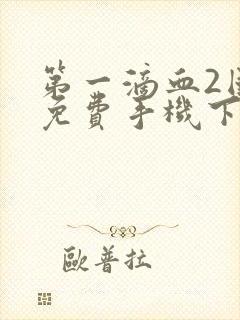 第一滴血2
免費手機下
歐普拉